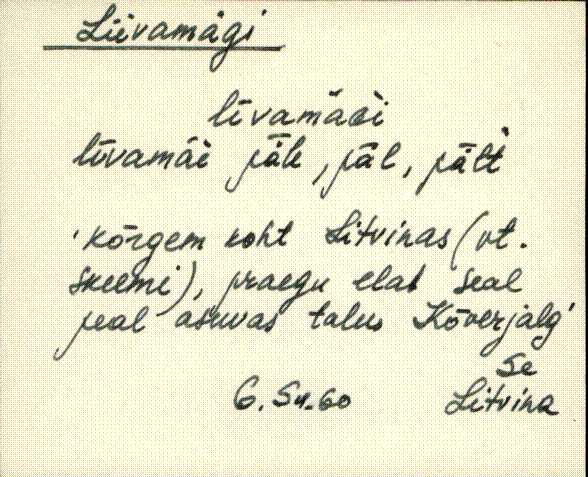 Liivamägi
līvamäǵi
līvamäe päle, päl, pält
'kõrgem koht Litvinas (vt.
skeemi), praegu elab seal
peal asuvas talus Kõverjalg'
Se
6. Su. 60 Litvina